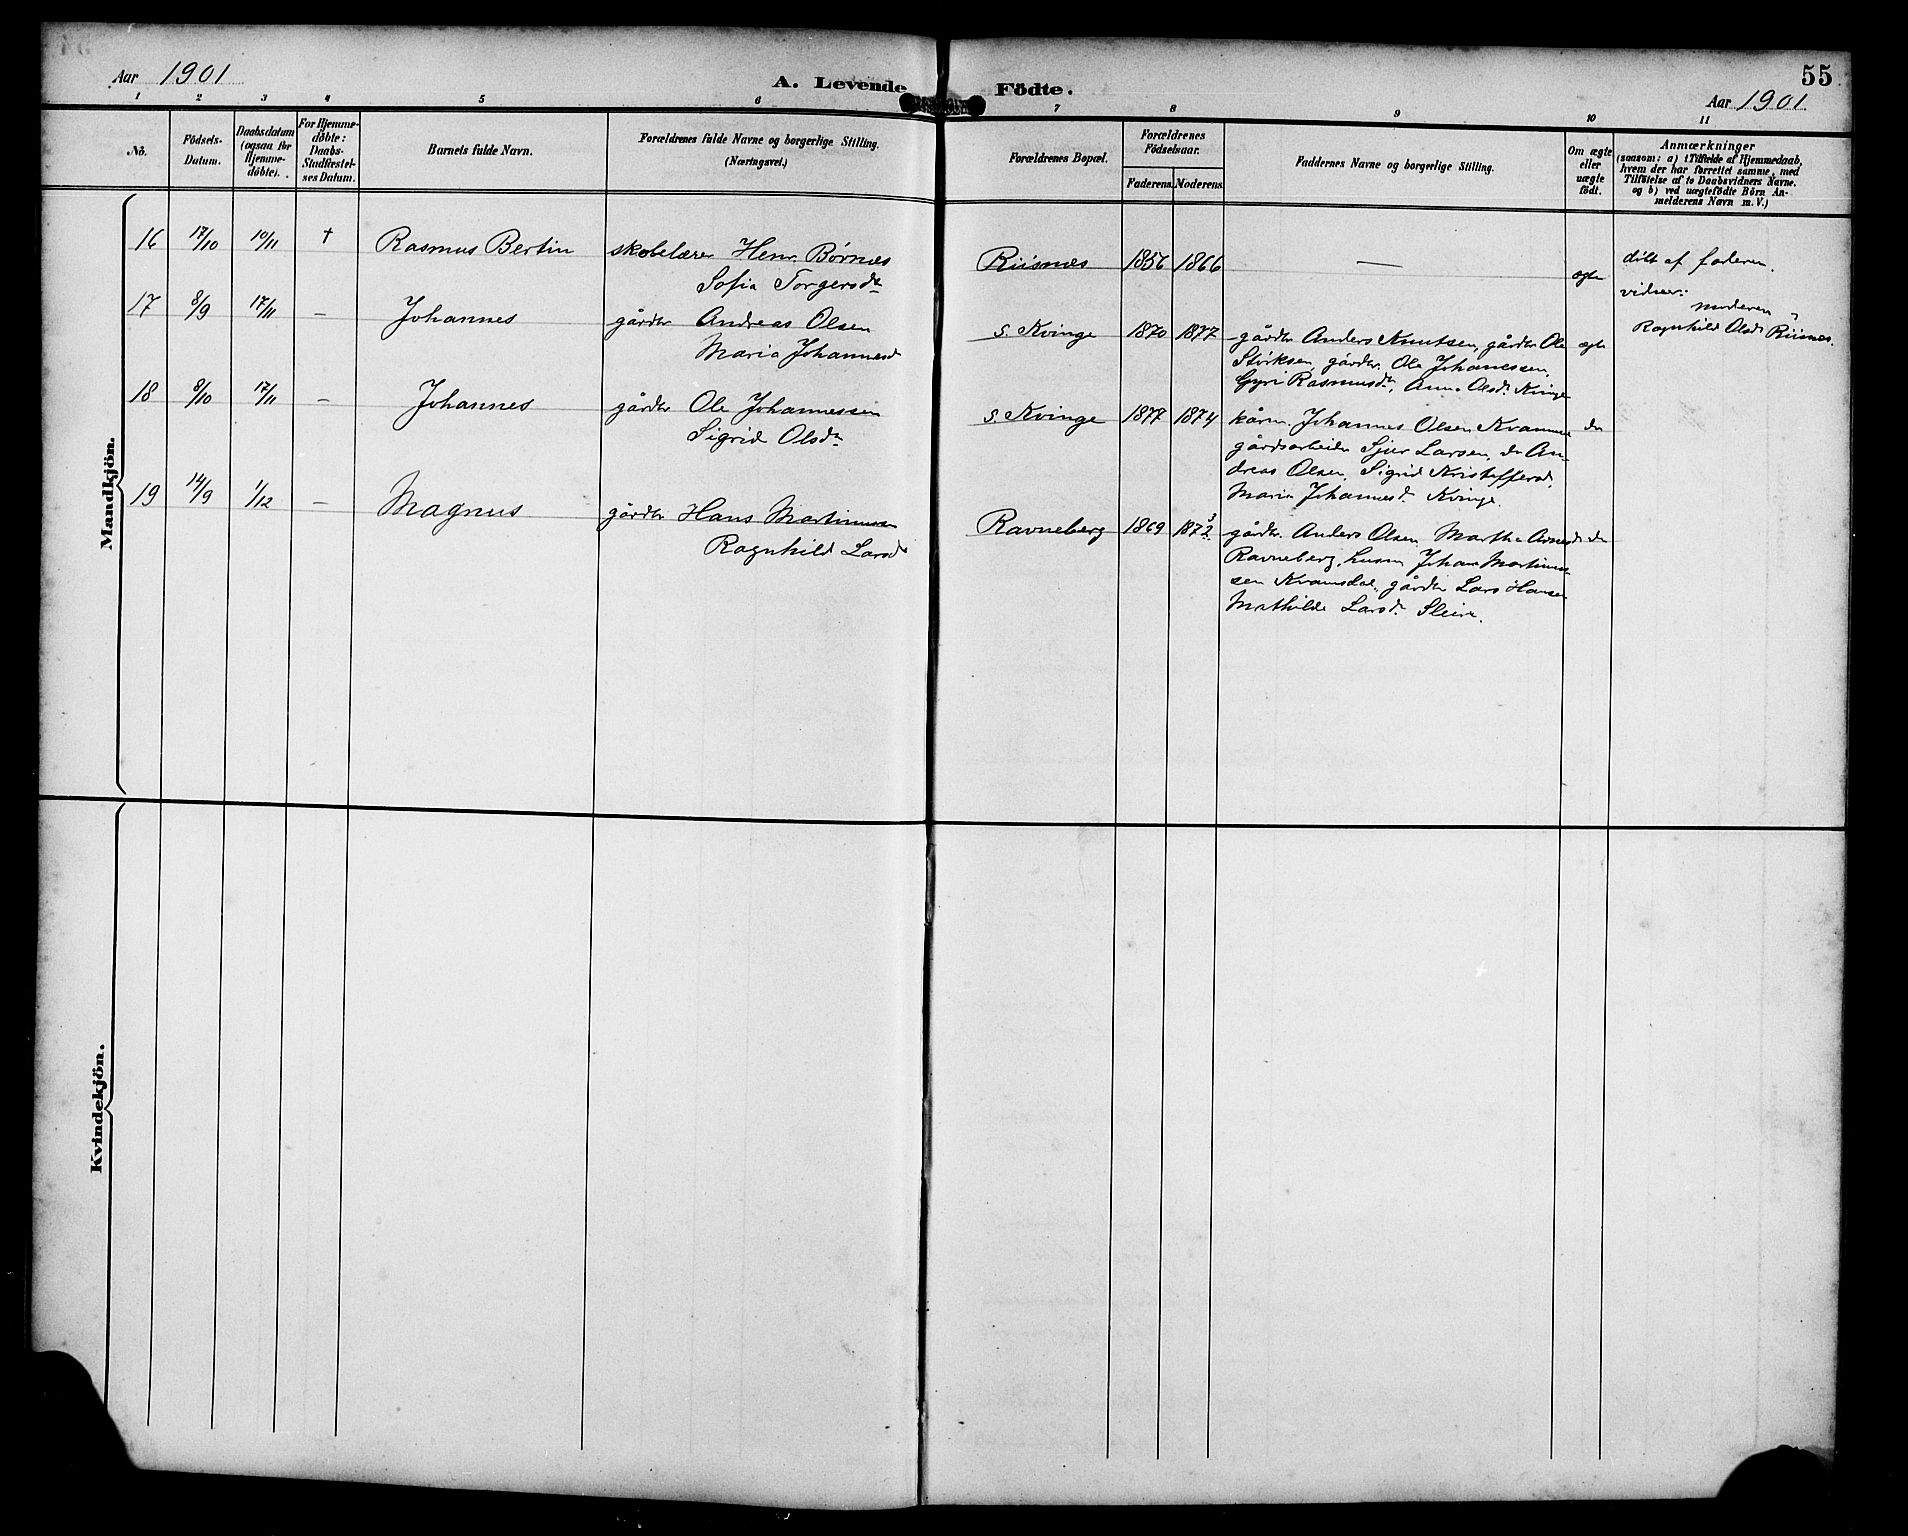 Aar 1901
A. Levende Födte.
55
Aar 1901
1 2 3 4 5 6 7 8 9 10 11
No.
Födsels-
Datum.
Daabsdatum
(ogsaa for
Hjemme-
døbte).
For Hjemme-
døbte:
Daabs-
Stadfæstel-
ses Datum.
Barnets fulde Navn.
Forældrenes fulde Navne og borgerlige Stilling.
(Næringsvei.)
Forældrenes Bopæl.
Forældrenes
Födselsaar.
Faderens. Moderens.
Faddernes Navne og borgerlige Stilling.
Om ægte
eller
uægte
födt.
Anmærkninger
(saasom: a) i Tilfælde af Hjemmedaab,
hvem der har forrettet samme, med
Tilföielse af to Daabsvidners Navne,
og b) ved uægtefødte Børn An-
melderens Navn m. V.)
Mandkjön.
16 17/10 10/11 † Rasmus Bertin skolelærer Henr. Børnes
Sofia Torgersdr
Riisnes 1856 1866 — ægte
døbt af faderen.
vidner:
moderen
Ragnhild Olsdr Riisnes.
17 8/9 17/11 – Johannes gårdbr Andreas Olsen
Maria Johannesd
s. Kvinge 1870 1877 gårdbr Anders Knutsen, gårdbr Ole ægte
Störksen, gårdbr. Ole Johanessen,
Gyri Rasmusdr, Anna Olsdr Kvinge
18 8/10 17/11 – Johannes gårdbr Ole Johannessen
Sigrid Olsdr
s. Kvinge 1877 1874 kårm. Johannes Olsen Kvamme do
gårdsarbeider Sjur Larsen, do An-
dreas Olsen, Sigrid Kristoffersd,
Maria Johannesd. Kvinge.
19 14/9 1/12 – Magnus gårdbr Hans Martinusen
Ragnhild Larsdr
Ravneberg 1869 1872 3 gårdbr. Anders Olsen, Martha Arnesdr do
Ravneberg, husm Johan Martinus-
sen Kvamsdal, gårdbr Lars Hansen
Mathilde Larsdr Sleire.
Kvindekjön.